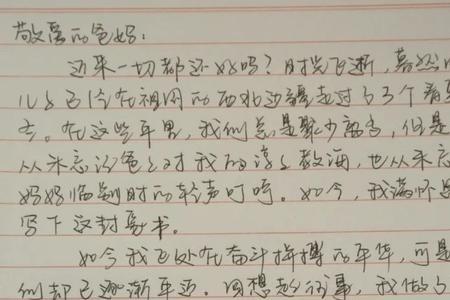 敬爱的爸妈:
近来一切都还好吗?时光飞逝,蓦然
儿女已经在祖国的西北边疆走过了3个春
冬。在这些年里,我们总是聚少离多,但是
从未忘记爸爸对我的谆谆教诲,也从未忘
妈妈临别时的轻声叮咛。如今,我满怀
写下这封家书。
如今我正处在奋斗拼搏的年华,可是
们却已逐渐年迈。回想起往事,我做了